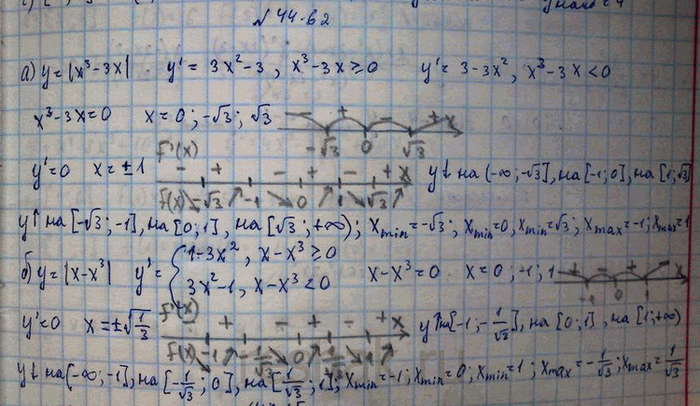 № 44.62
а) y = |x³-3x|   y' = 3x²-3, x³-3x ≥ 0   y' = 3-3x², x³-3x < 0
x³-3x=0   x=0; -√3; √3   - + - + x
-√3 0 √3
f'(x)
y'=0   x=±1   - + - + - + x   y↓ на (-∞; -√3], на [-1; 0], на [1; √3]
f(x) -√3 -1 0 1 √3
y↑ на [-√3; -1], на [0; 1], на [√3; +∞); xmin=-√3; xmin=0, xmin=√3; xmax=-1; xmax=1
б) y = |x-x³|   y' = { 1-3x², x-x³ ≥ 0
3x²-1, x-x³ < 0   x-x³=0   x=0; -1; 1   + - + - x
-1 0 1
y'=0   x=±√1/3   f'(x) - + - + - + x   y↑ на [-1; -1/√3], на [0; 1], на [1; +∞)
f(x) -1 -1/√3 0 1/√3 1
y↓ на (-∞; -1], на [-1/√3; 0], на [1/√3; 1]; xmin=-1; xmin=0; xmin=1; xmax=-1/√3; xmax=1/√3